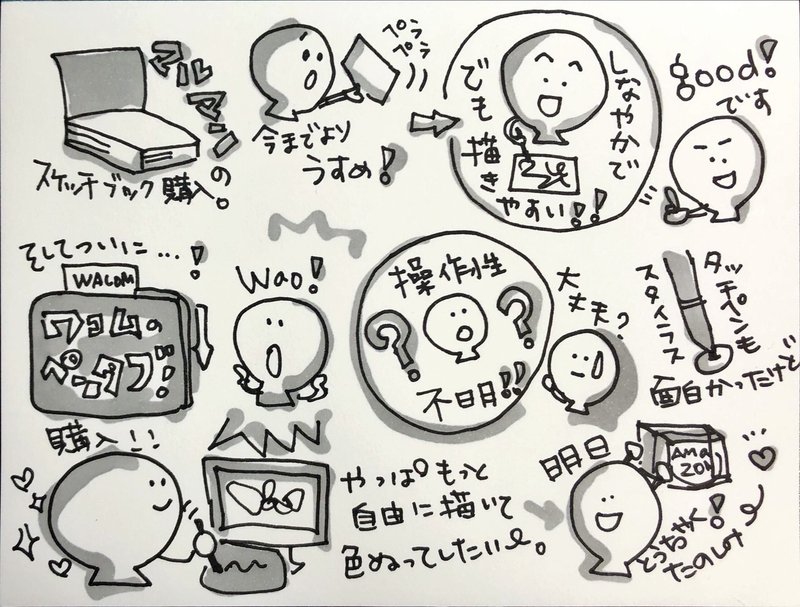 マルマンの
スケッチブック購入。
ペラペラ
今までより
うすめ!
しなやかで
でも描きやすい!!
good!
です
そしてついに…!
WACOM
ワコムの
ペンタブ!
購入!!
Wao!
操作性
??
不明!!
大丈夫?
タッチペンも
スタイラス
面白かったけど
やっぱもっと
自由に描いて
色ぬってしたい〜。
明日
AMAZON
とうちゃく!
たのしみ〜
…